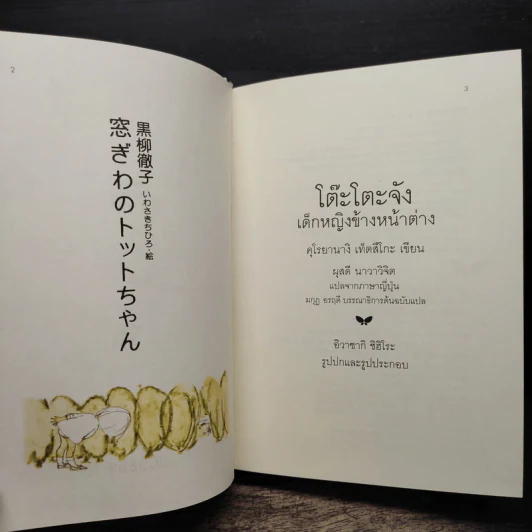 2
黒柳徹子
いわさきちひろ・絵
窓ぎわのトットちゃん
3
โต๊ะโตะจัง
เด็กหญิงข้างหน้าต่าง
คุโรยานางิ เท็ตสึโกะ เขียน
ผุสดี นาวาวิจิต
แปลจากภาษาญี่ปุ่น
มกุฏ อรฤดี บรรณาธิการต้นฉบับแปล
อิวาซากิ ชิฮิโระ
รูปปกและรูปประกอบ